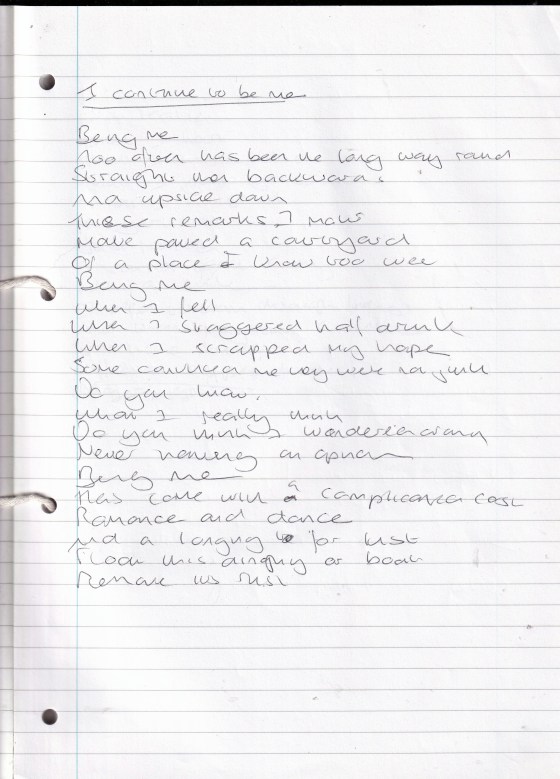 I continue to be me
Being me
Too often has been the long way round
Straight then backward.
And upside down
These remarks I make
Have paved a courtyard
Of a place I know too well
Being me
When I fell
When I staggered half drunk
When I scrapped my hope
Some convinced me they were
Do you know,
What I really think
Do you think I wandered around
Never having an opinion
Being me
Has come with a complicated cost
Romance and dance
And a longing for lust
Float this dinghy or boat
Remove its rust